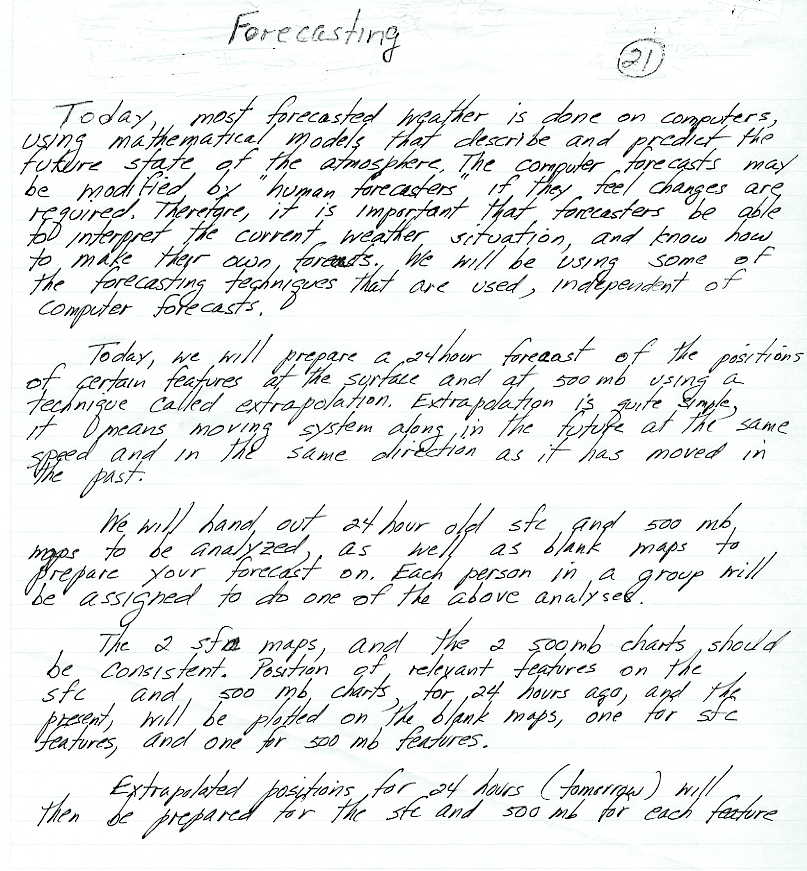 Forecasting
21
Today, most forecasted weather is done on computers,
using mathematical models that describe and predict the
future state of the atmosphere. The computer forecasts may
be modified by "human forecasters" if they feel changes are
required. Therefore, it is important that forecasters be able
to interpret the current weather situation, and know how
to make their own forecasts. We will be using some of
the forecasting techniques that are used, independent of
computer forecasts.
Today, we will prepare a 24 hour forecast of the positions
of certain features at the surface and at 500 mb using a
technique called extrapolation. Extrapolation is quite simple,
it means moving system along in the future at the same
speed and in the same direction as it has moved in
the past.
We will hand out 24 hour old sfc and 500 mb
maps to be analyzed, as well as blank maps to
prepare your forecast on. Each person in a group will
be assigned to do one of the above analyses.
The 2 sfc maps, and the 2 500mb charts should
be consistent. Position of relevant features on the
sfc and 500 mb charts, for 24 hours ago, and the
present, will be plotted on the blank maps, one for sfc
features, and one for 500 mb features.
Extrapolated positions for 24 hours (tomorrow) will
then be prepared for the sfc and 500 mb for each feature